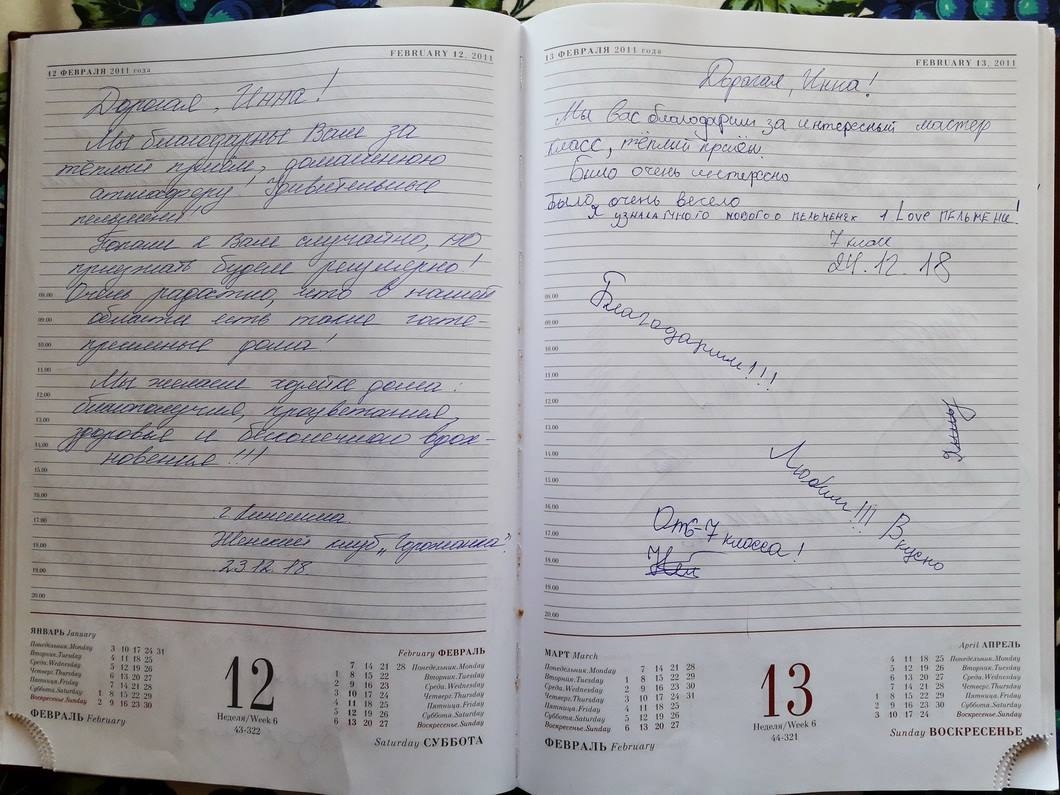 12 ФЕВРАЛЯ 2011 года
FEBRUARY 12, 2011
Дорогая, Инна!
Мы благодарны Вам за
тёплый приём, домашнюю
атмосферу! Удивительные
пельмени!
Попали к Вам случайно, но
приезжать будем регулярно!
Очень радостно, что в нашей
области есть такие госте-
приимные дома!
Мы желаем хозяйке дома:
благополучия, процветания,
здоровья и бесконечного вдох-
новения!!!
г. Кинешма.
Женский клуб „Горожанка".
23.12.18
08.00
09.00
10.00
11.00
12.00
13.00
14.00
15.00
16.00
17.00
18.00
19.00
20.00
ЯНВАРЬ January
Понедельник.Monday 3 10 17 24 31
Вторник.Tuesday 4 11 18 25
Среда.Wednesday 5 12 19 26
Четверг.Thursday 6 13 20 27
Пятница.Friday 7 14 21 28
Суббота.Saturday 1 8 15 22 29
Воскресенье.Sunday 2 9 16 23 30
ФЕВРАЛЬ February
12
Неделя/Week 6
43-322
February ФЕВРАЛЬ
7 14 21 28 Понедельник.Monday
1 8 15 22 Вторник.Tuesday
2 9 16 23 Среда.Wednesday
3 10 17 24 Четверг.Thursday
4 11 18 25 Пятница.Friday
5 12 19 26 Суббота.Saturday
6 13 20 27 Воскресенье.Sunday
Saturday СУББОТА
13 ФЕВРАЛЯ 2011 года
FEBRUARY 13, 2011
Дорогая, Инна!
Мы вас благодарим за интересный мастер
класс, тёплий приём.
Было очень интерсно
Было очень весело
Я узнала много нового о пельменях I Love ПЕЛЬМЕНИ!
7 класс
24.12.18
Благодарим!!!
Любим!!! Вкусно
От 7 класса!
08.00
09.00
10.00
11.00
12.00
13.00
14.00
15.00
16.00
17.00
18.00
19.00
20.00
МАРТ March
Понедельник.Monday 7 14 21 28
Вторник.Tuesday 1 8 15 22 29
Среда.Wednesday 2 9 16 23 30
Четверг.Thursday 3 10 17 24 31
Пятница.Friday 4 11 18 25
Суббота.Saturday 5 12 19 26
Воскресенье.Sunday 6 13 20 27
ФЕВРАЛЬ February
13
Неделя/Week 6
44-321
April АПРЕЛЬ
4 11 18 25 Понедельник.Monday
5 12 19 26 Вторник.Tuesday
6 13 20 27 Среда.Wednesday
7 14 21 28 Четверг.Thursday
1 8 15 22 29 Пятница.Friday
2 9 16 23 30 Суббота.Saturday
3 10 17 24 Воскресенье.Sunday
Sunday ВОСКРЕСЕНЬЕ